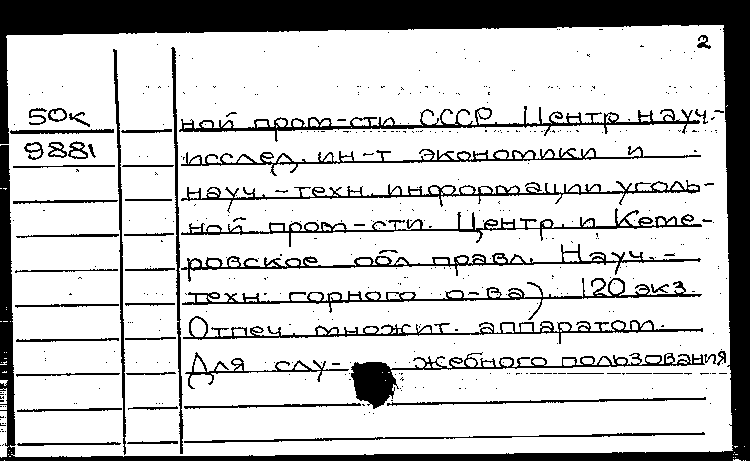 2
50к
9881
ной пром-сти СССР. Центр. науч.-
исслед. ин-т экономики и
науч.-техн. информации уголь-
ной пром-сти. Центр. и Кеме-
ровское обл. правл. Науч.-
техн. горного о-ва). 120 экз.
Отпеч. множит. аппаратом.
Для слу- жебного пользования